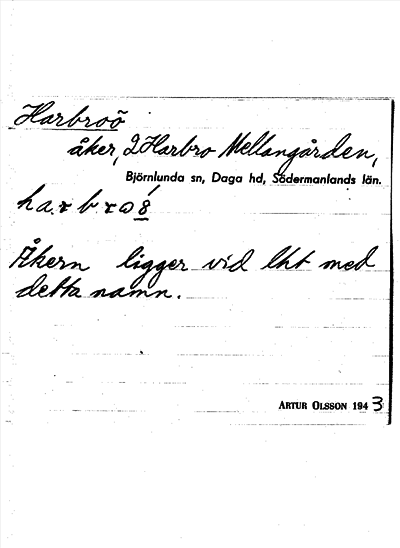 Harbroö
åker, 2 Harbro Mellangården,
Björnlunda sn, Daga hd, Södermanlands län.
Åkern ligger vid lht med
detta namn.
ARTUR OLSSON 1943